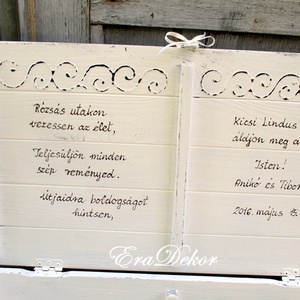 Rózsás utakon
vezessen az élet,
Teljesüljön minden
szép reményed.
Útjaidra boldogságot
hintsen,
Kicsi Lindus
áldjon meg a
Isten!
Anikó és Tibor
2016. május
EraDekor